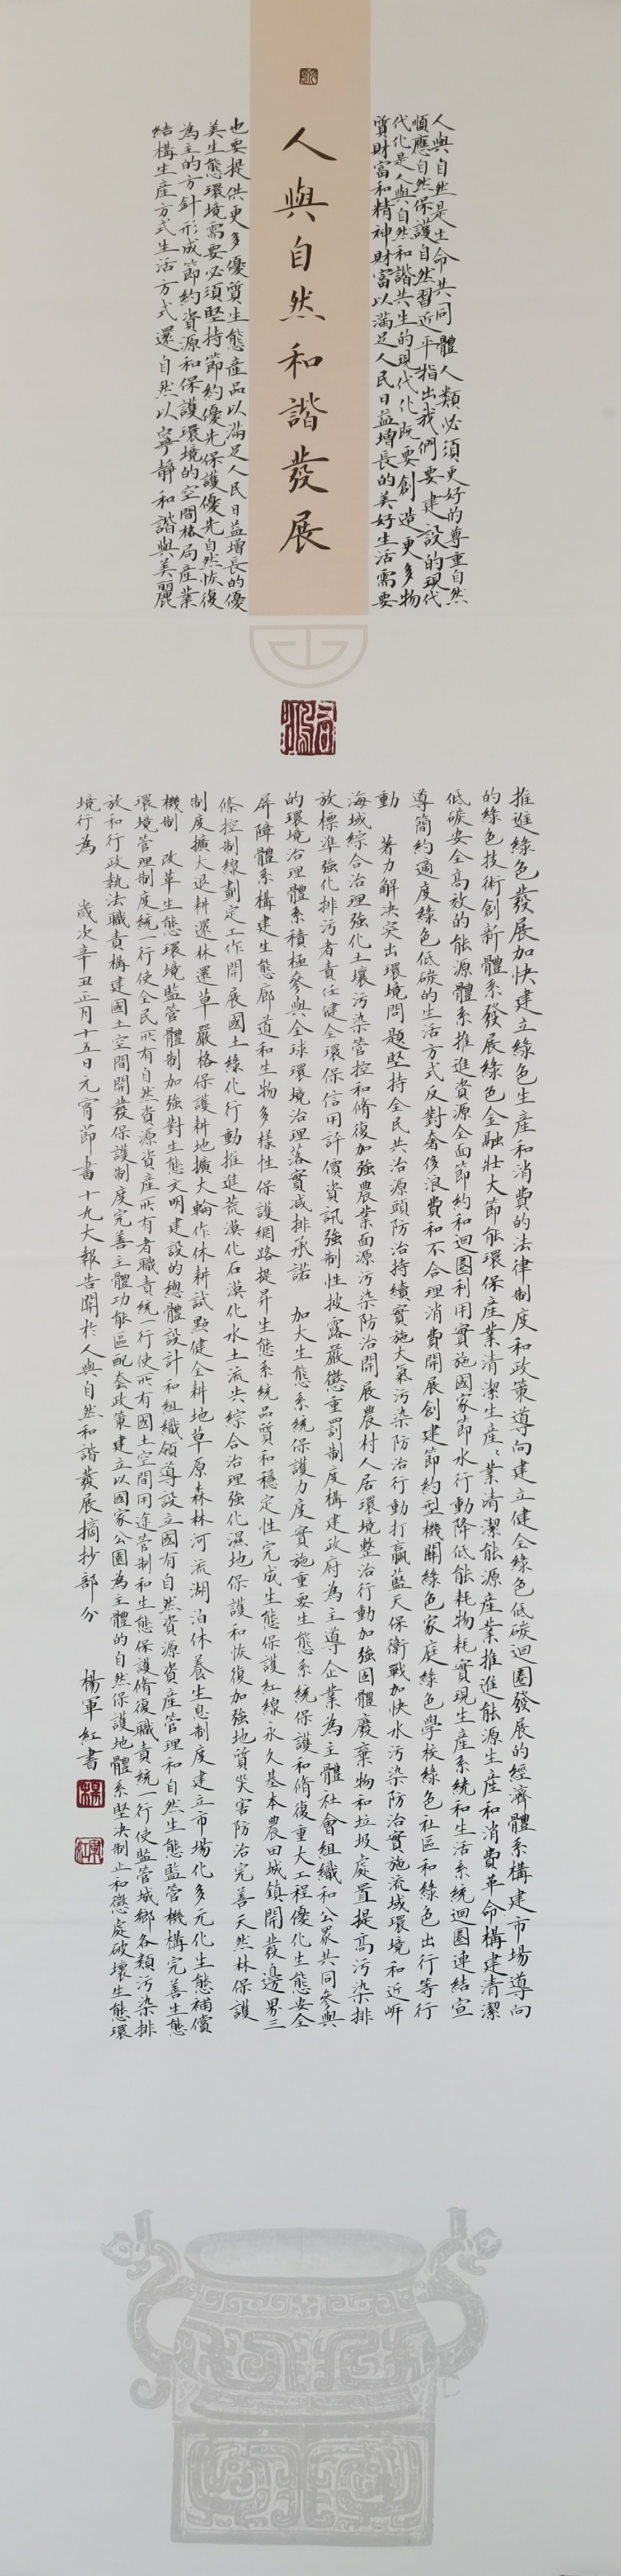 人與自然是生命共同體人類必須更好的尊重自然
順應自然保護自然習近平指出我們要建設的現代
代化是人與自然和諧共生的現代化既要創造更多物
質財富和精神財富以滿足人民日益增長的美好生活需要
人與自然和諧發展
也要提供更多優質生態產品以滿足人民日益增長的優
美生態環境需要必須堅持節約優先保護優先自然恢復
為主的方針形成節約資源和保護環境的空間格局產業
結構生產方式生活方式還自然以寧靜和諧與美麗
推進綠色發展加快建立綠色生產和消費的法律制度和政策導向建立健全綠色低碳迴圈發展的經濟體系構建市場導向
的綠色技術創新體系發展綠色金融壯大節能環保產業清潔生產、業清潔能源產業推進能源生產和消費革命構建清潔
低碳安全高效的能源體系推進資源全面節約和迴圈利用實施國家節水行動降低能耗物耗實現生產系統和生活系統迴圈連結宣
導簡約適度綠色低碳的生活方式反對奢侈浪費和不合理消費開展創建節約型機關綠色家庭綠色學校綠色社區和綠色出行等行
動 著力解決突出環境問題堅持全民共治源頭防治持續實施大氣污染防治行動打贏藍天保衛戰加快水污染防治實施流域環境和近岸
海域綜合治理強化土壤污染管控和脩復加強農業面源污染防治開展農村人居環境整治行動加強固體廢棄物和垃圾處置提高污染排
放標準強化排污者責任健全環保信用評價資訊強制性披露嚴懲重罰制度構建政府為主導企業為主體社會組織和公眾共同參與
的環境治理體系積極參與全球環境治理落實減排承諾 加大生態系統保護力度實施重要生態系統保護和脩復重大工程優化生態安全
屏障體系構建生態廊道和生物多樣性保護網路提昇生態系統品質和穩定性完成生態保護紅線永久基本農田城鎮開發邊界三
條控制線劃定工作開展國土綠化行動推進荒漠化石漠化水土流失綜合治理強化濕地保護和恢復加強地質災害防治完善天然林保護
制度擴大退耕還林還草嚴格保護耕地擴大輪作休耕試點健全耕地草原森林河流湖泊休養生息制度建立市場化多元化生態補償
機制 改革生態環境監管體制加強對生態文明建設的總體設計和組織領導設立國有自然資源資產管理和自然生態監管機構完善生態
環境管理制度統一行使全民所有自然資源資產所有者職責統一行使所有國土空間用途管制和生態保護脩復職責統一行使監管城鄉各類污染排
放和行政執法職責構建國土空間開發保護制度完善主體功能區配套政策建立以國家公園為主體的自然保護地體系堅決制止和懲處破壞生態環
境行為 歲次辛丑正月十五日元宵節書十九大報告關於人與自然和諧發展摘抄部分 楊軍紅書